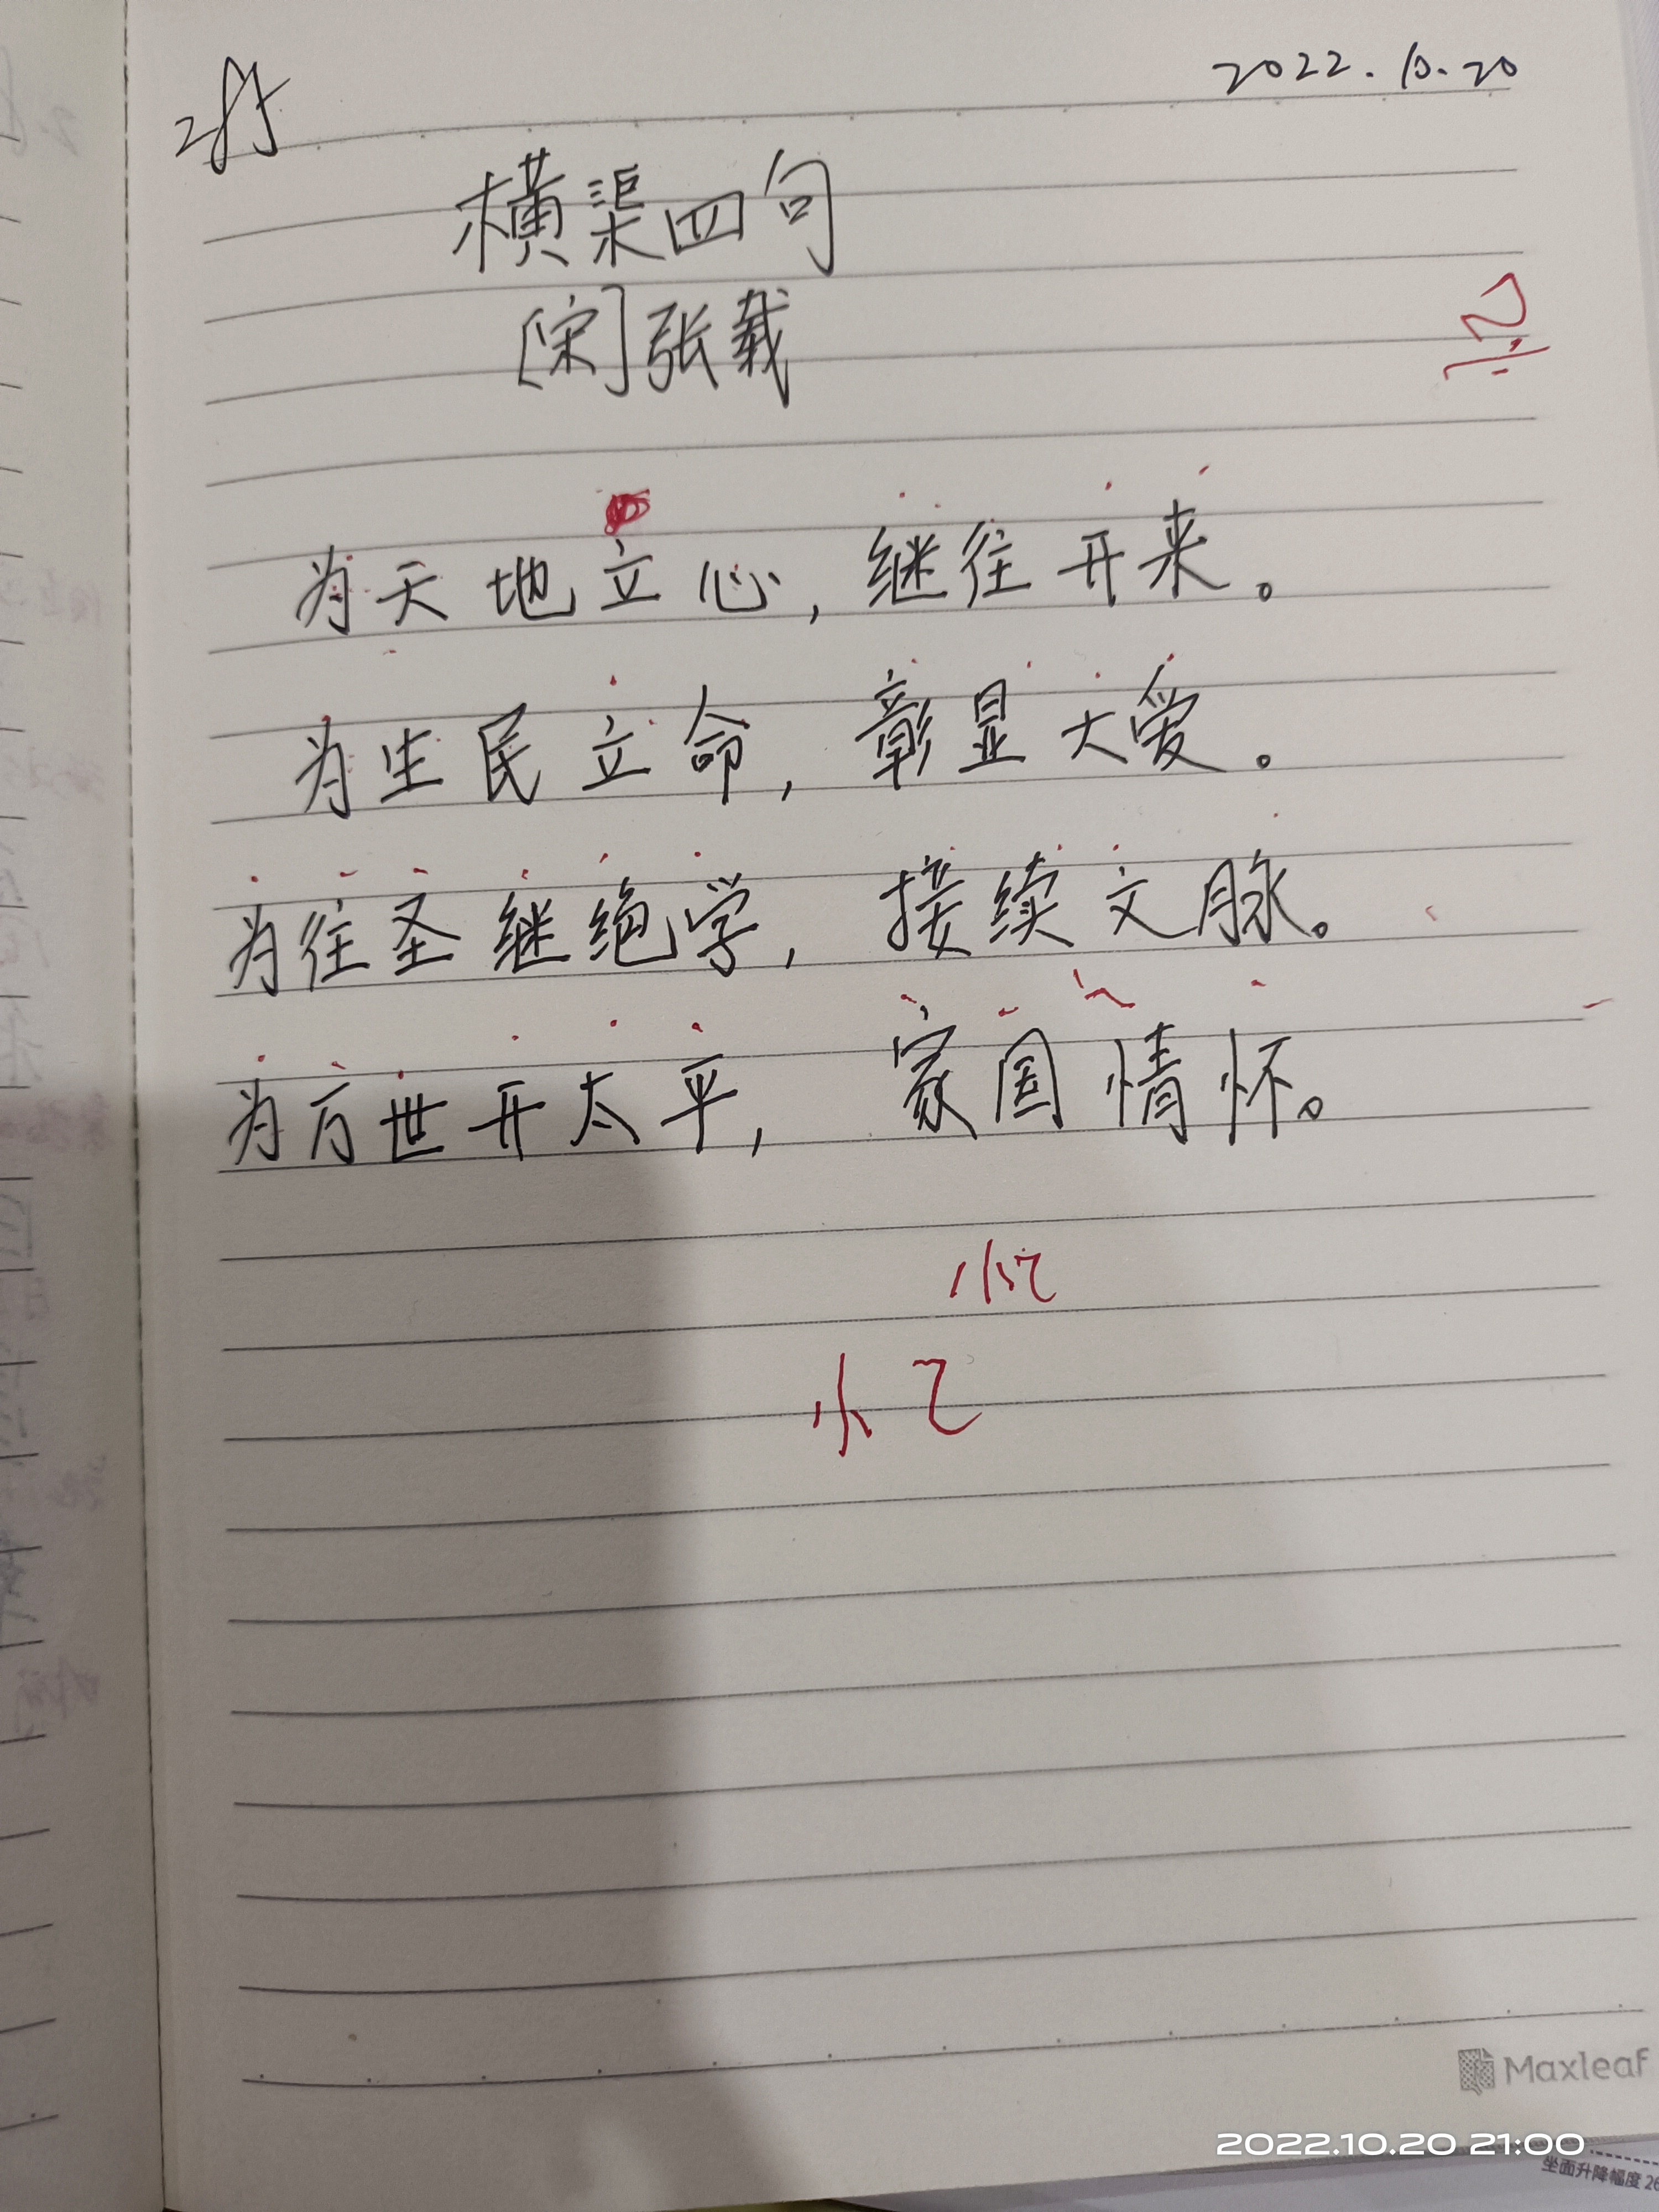 2022.10.20
横渠四句
[宋]张载
为天地立心，继往开来。
为生民立命，彰显大爱。
为往圣继绝学，接续文脉。
为万世开太平，家国情怀。
小乙
小乙
Maxleaf
2022.10.20 21:00
坐面升降幅度 26